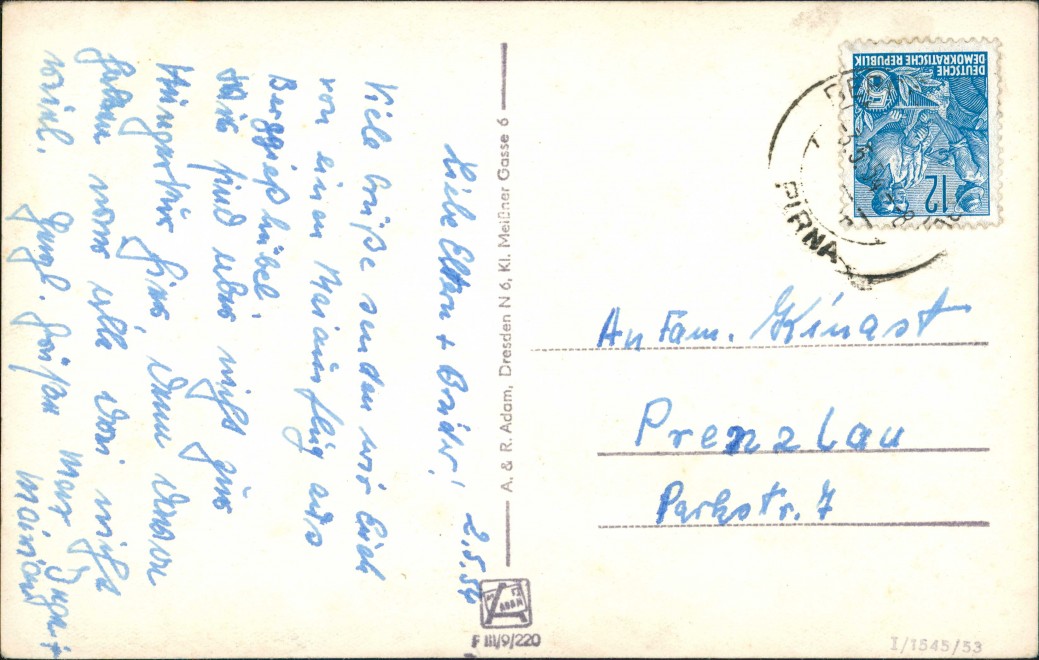 Liebe Eltern + Brüder! 2.5.54
Viele Grüße senden wir Euch
von einem Maiausflug aus
Berggießhübel.
Wir sind aber nicht zur
Hungerkur hier, denn davon
haben wir alle drei nichts
weil. Herzl. Grüßen
A. & R. Adam, Dresden N 6, Kl. Meißner Gasse 6
ADAM
F III/9/220
DEUTSCHE
DEMOKRATISCHE REPUBLIK
12
PIRNA
An Fam. Kinast
Prenzlau
Parkstr. 7
I/1545/53